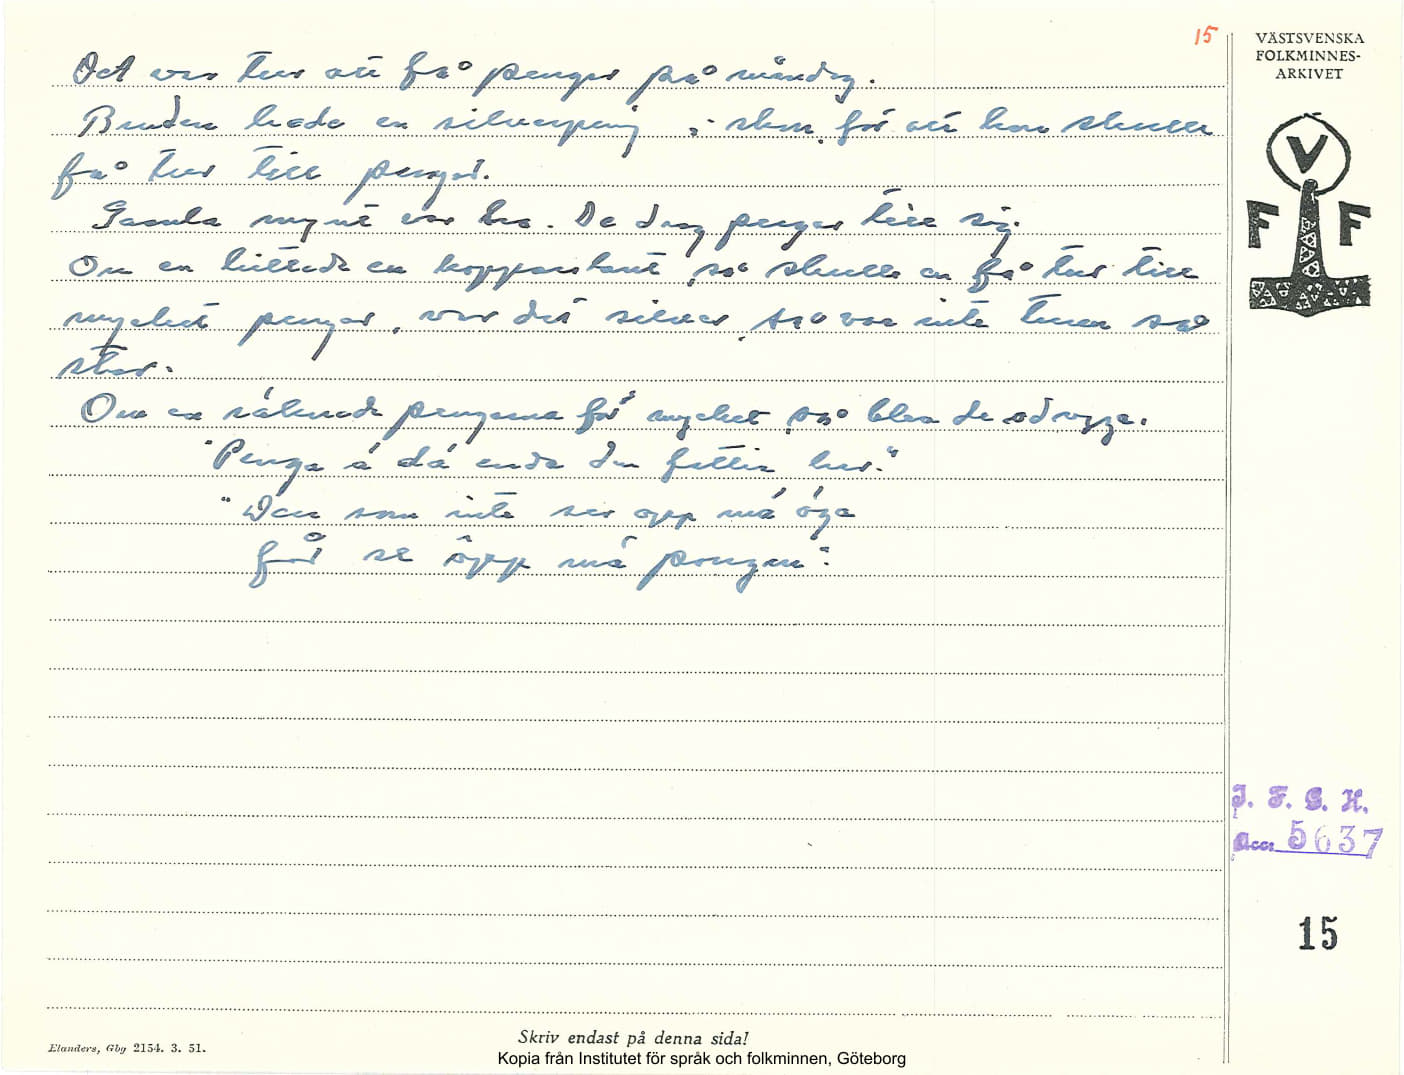 15
VÄSTSVENSKA
FOLKMINNES-
ARKIVET
V
F F
Det var tur att få pengar på måndag.
Bruden hade en silverpeng i skon, för att hon skulle
få tur till pengar.
Gamla mynt var bra. De drog pengar till sig.
Om en hittade en kopparslant, så skulle en få tur till
mycket pengar, var det silver, så var inte turen så
stor.
Om en räknade pengarna för mycket, så blev de odryga.
"Penga á dá enda den fattia har."
"Den som inte ser opp má öga
får se öpp má pongen".
J. F. G. H.
Acc. 5637
15
Skriv endast på denna sida!
Elanders, Gbg 2154. 3. 51.
Kopia från Institutet för språk och folkminnen, Göteborg